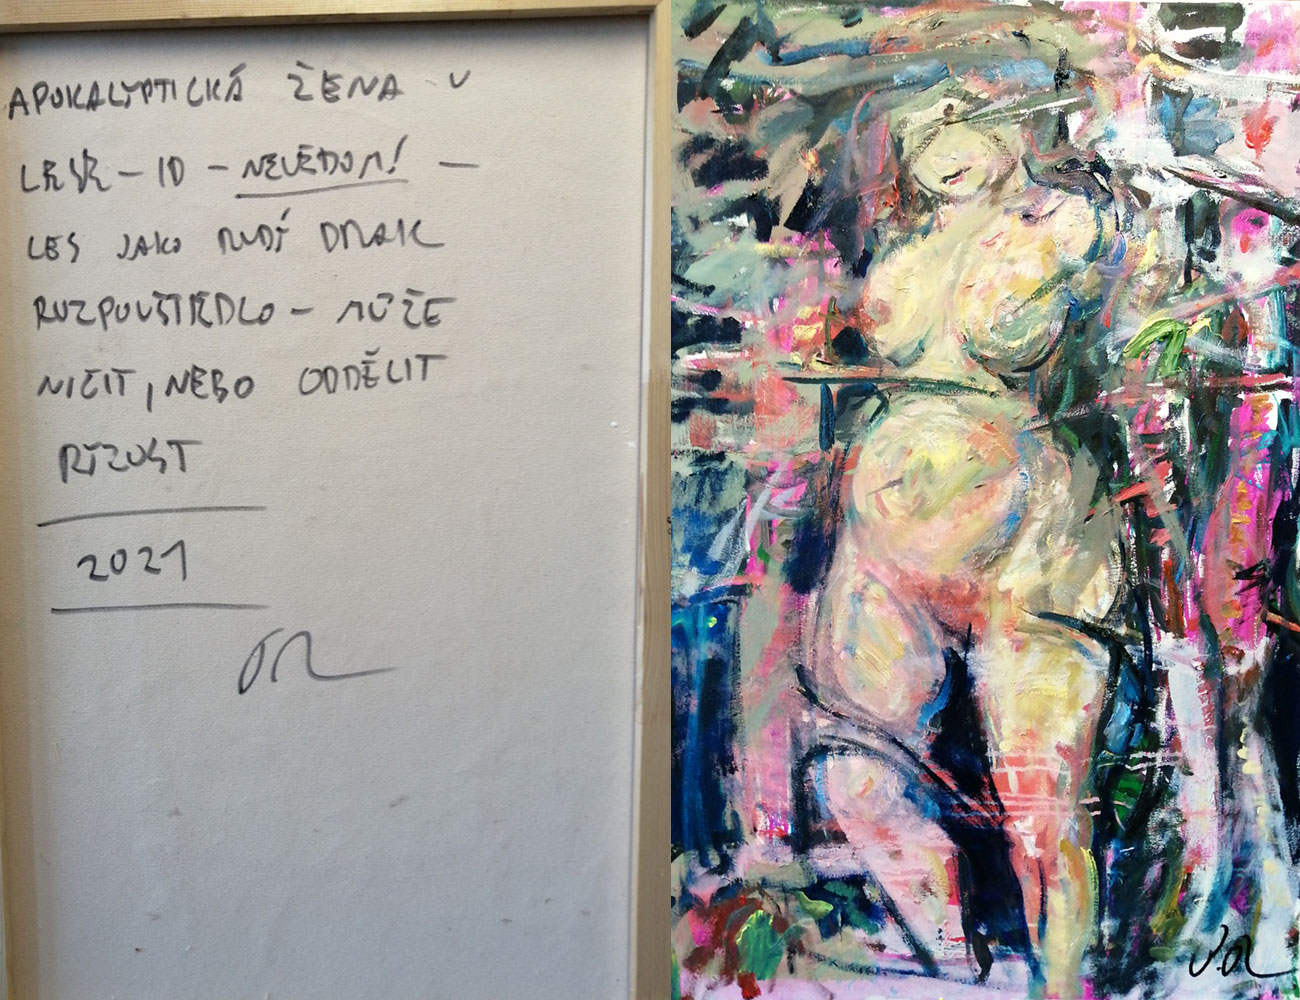 APOKALYPTICKÁ ŽENA V
LESE – ID – NEVĚDOMÍ –
LES JAKO RUDÝ DRAK
ROZPOUŠTĚDLO – MŮŽE
NIČIT, NEBO ODDĚLIT
RYZOST
2021